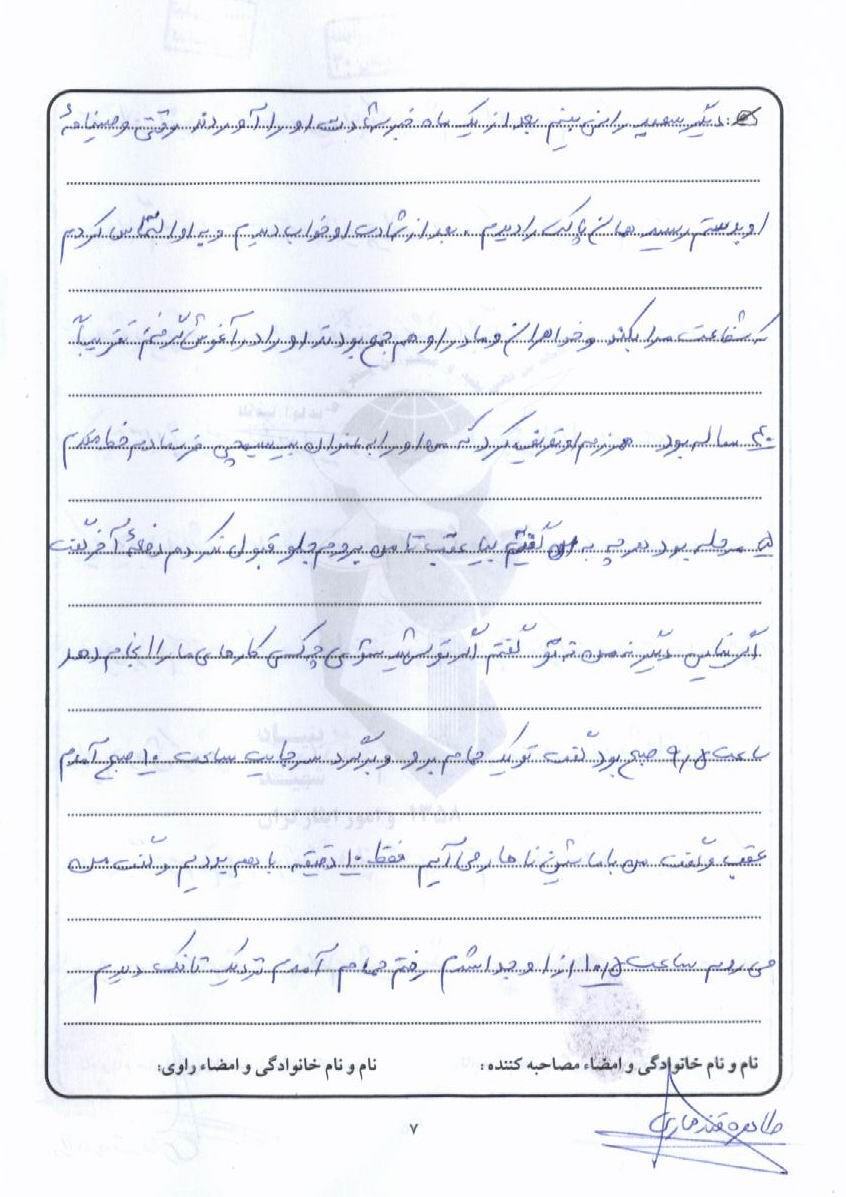 دیگر سعید را نمی بینم بعد از یک ماه خبر شهادت او را آوردند وقتی وصینامهٔ
او بدستم رسید همان پاکت را دیدم . بعد از شهادت او خواب دیدم و به او التماس کردم
که شفاعت مرا بکند و خواهران و مادر او هم جمع بودند او را در آغوش گرفتم تقریباً
ساله بود همرزم او تعریف کرد که من او را به عنوان بیسیمچی فرستادم خط مقدم
مرحله بود هر چه به من گفتم بیا عقب تا من بروم جلو قبول نکرد دفعهٔ آخر گفت
اگر نیایی دیگر نه من نه تو گفتم اگر تو شهید شوی چه کسی کارهای ما را انجام دهد
ساعت ۹/۵ صبح بود گفت تو یک حمام برو و برگرد سر جایت ساعت ۱۰ صبح آمدم
عقب و گفت من با ماشین ناهار می آیم فقط ۱۰ دقیقه با هم بودیم و گفت من
می روم ساعت ۱۰/۵ از او جدا شدم رفتم حمام آمدم نزدیک تانک دیدم
نام و نام خانوادگی و امضاء مصاحبه کننده : نام و نام خانوادگی و امضاء راوی:
طاهره قندهاری
۷